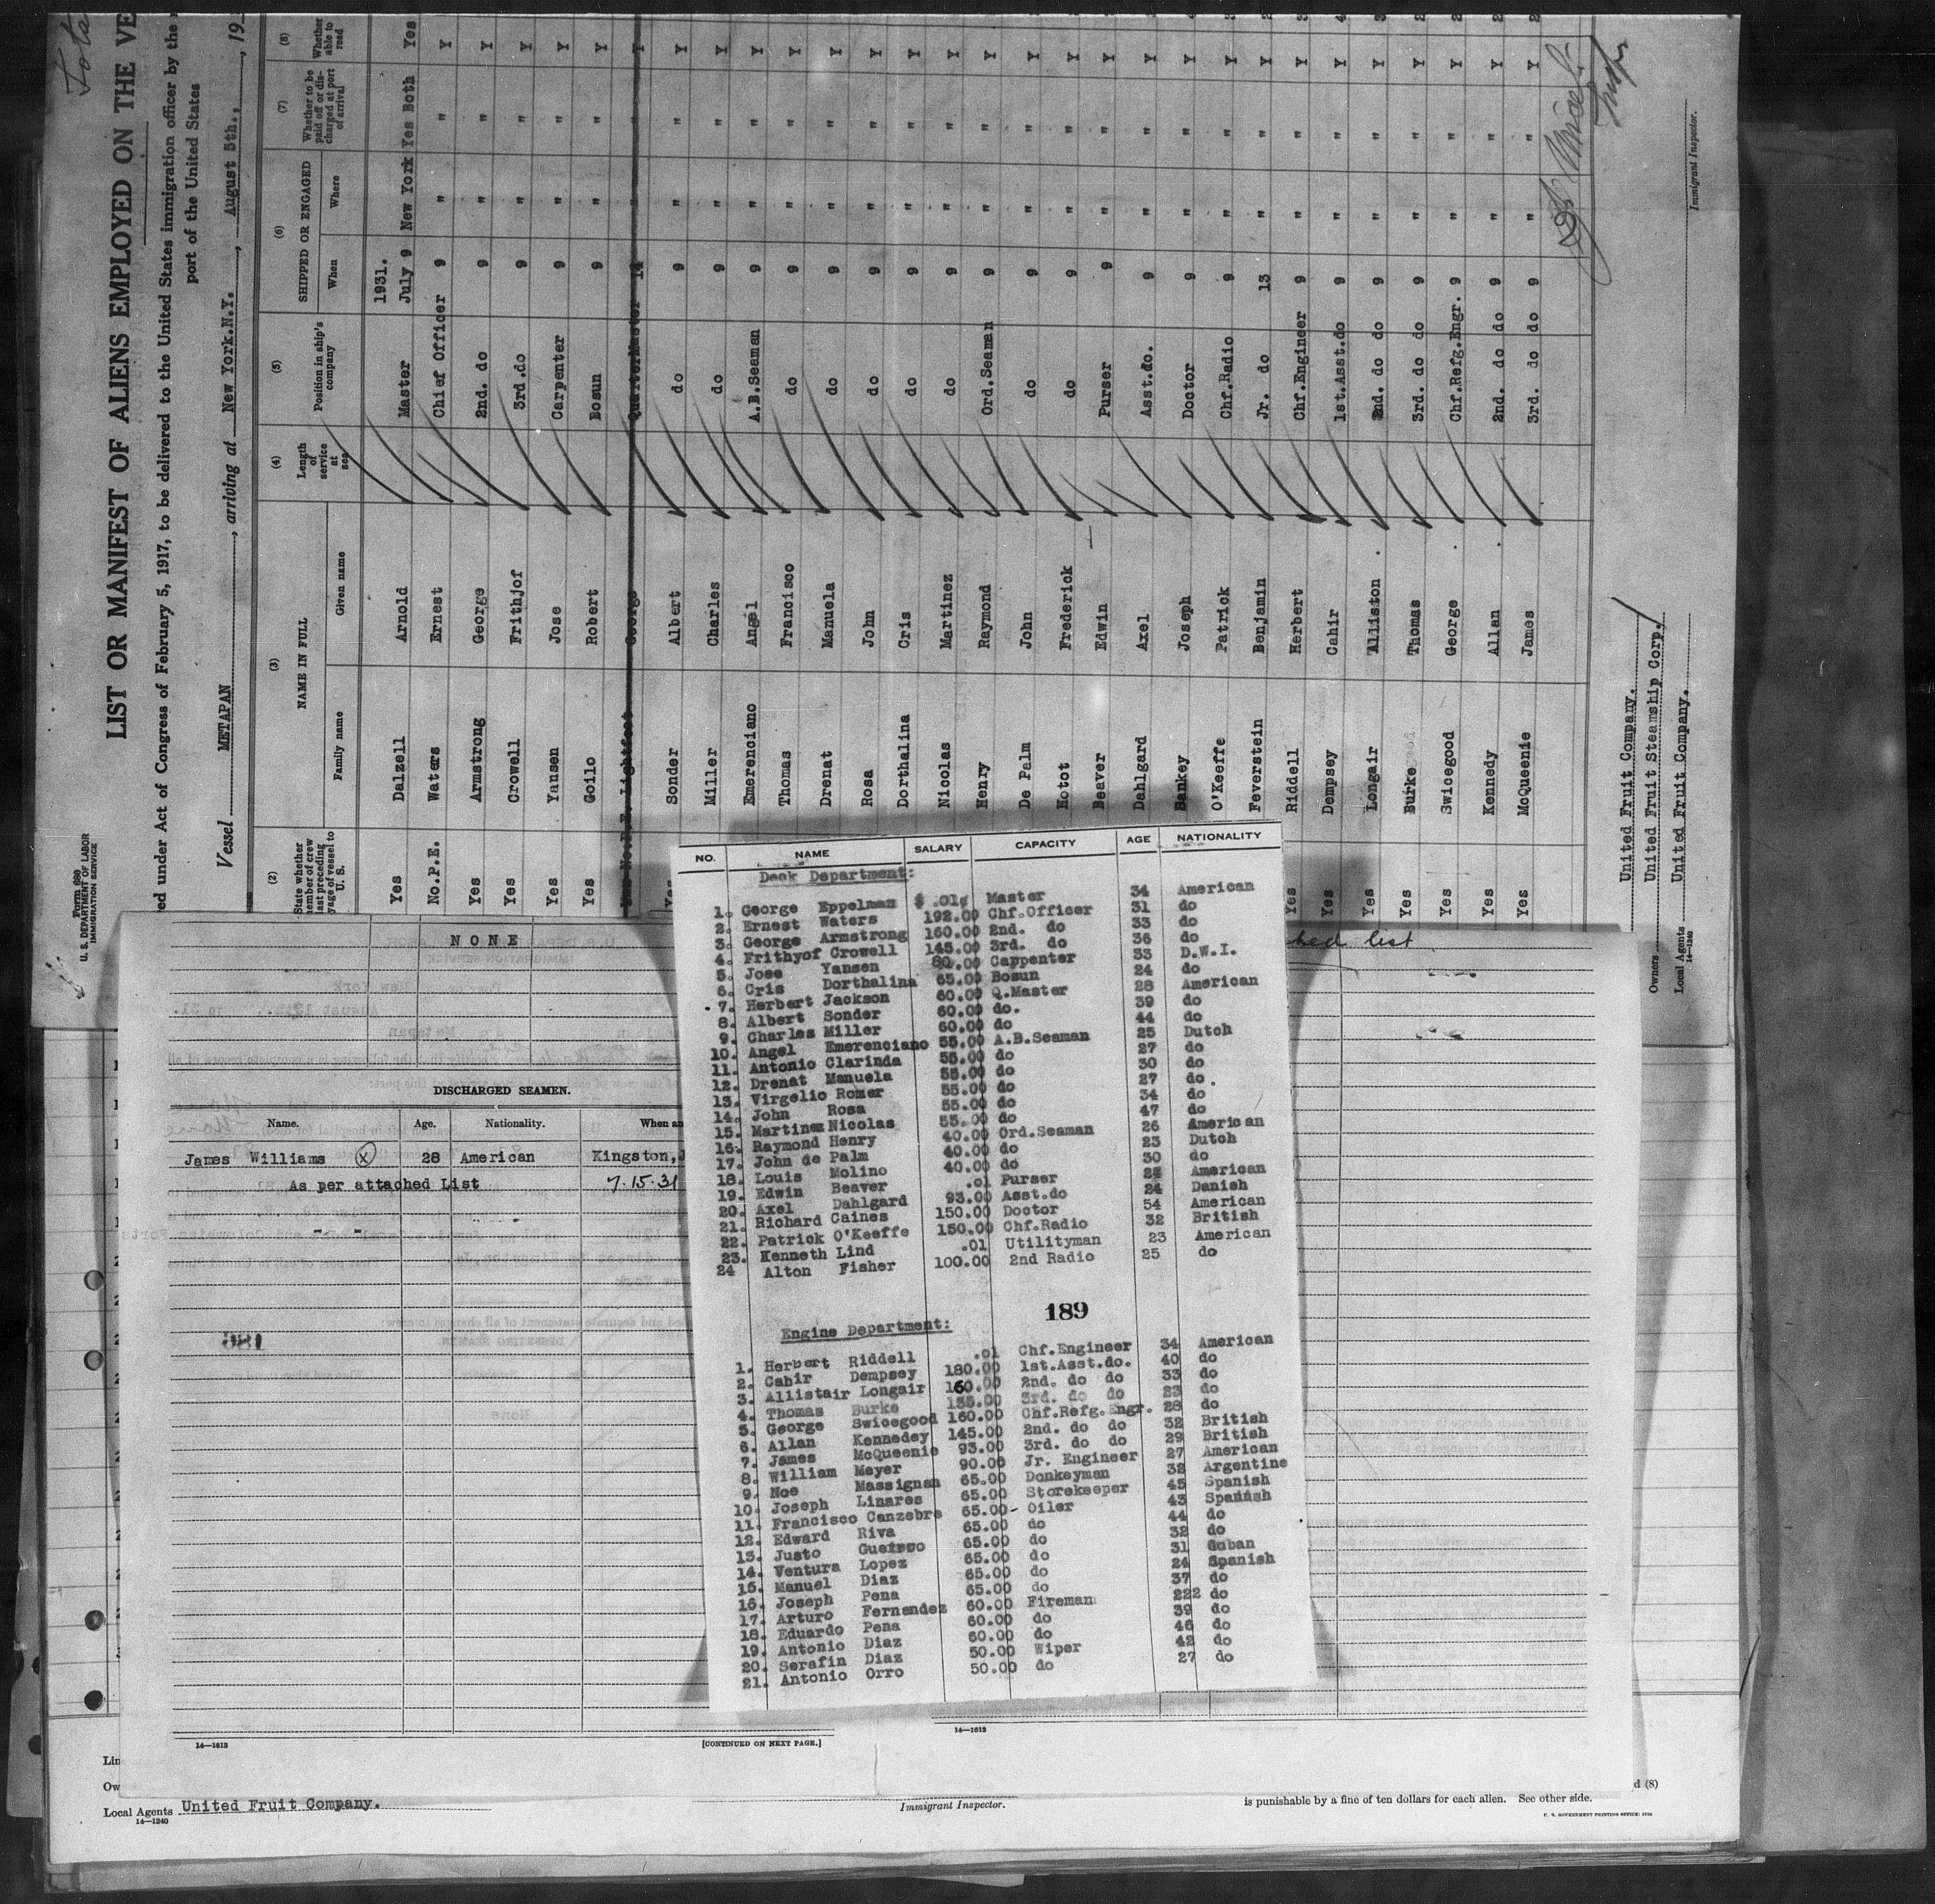 Form 680
U. S. DEPARTMENT OF LABOR
IMMIGRATION SERVICE
LIST OR MANIFEST OF ALIENS EMPLOYED ON THE VE
ed under Act of Congress of February 5, 1917, to be delivered to the United States immigration officer by the
port of the United States
Vessel METAPAN, arriving at New York.N.Y., August 5th., 19
(2) (3) (4) (5) (6) (7) (8)
State whether member of crew last preceding voyage of vessel to U. S. NAME IN FULL Length of service at sea Position in ship's company SHIPPED OR ENGAGED Whether to be paid off or discharged at port of arrival Whether able to read
Family name Given name When Where
1931.
Yes Dalzell Arnold Master July 9 New York Yes Both Yes
No.P.E. Waters Ernest Chief Officer 9 " " Y
Yes Armstrong George 2nd. do 9 " " Y
Yes Crowell Frithjof 3rd.do 9 " " Y
Yes Yansen Jose Carpenter 9 " " Y
Yes Goilo Robert Bosun 9 " " Y
No.P.E. Lightfoot George QuarterMaster 14 " " Y
Yes Sonder Albert do 9 " " Y
Miller Charles do 9 " " Y
Emerenciano Angel A.B.Seaman 9 " " Y
Thomas Francisco do 9 " " Y
Drenat Manuela do 9 " " Y
Rosa John do 9 " " Y
Dorthalina Cris do 9 " " Y
Nicolas Martinez do 9 " " Y
Henry Raymond Ord.Seaman 9 " " Y
De Palm John do 9 " " Y
Hotot Frederick do 9 " " Y
Beaver Edwin Purser 9 " " Y
Dahlgard Axel Asst.do. 9 " " Y
Bankey Joseph Doctor 9 " " Y
O'Keeffe Patrick Chf.Radio 9 " " Y
Feverstein Benjamin Jr. do 13 " " Y
Yes Riddell Herbert Chf.Engineer 9 " " Y
Yes Dempsey Cahir 1st.Asst.do 9 " " Y
Yes Longair Alliston 2nd. do do 9 " " Y
Yes Burke Thomas 3rd. do do 9 " " Y
Yes Swicegood George Chf.Refg.Engr. 9 " " Y
Yes Kennedy Allan 2nd. do do 9 " " Y
Yes McQueenie James 3rd. do do 9 " " Y
United Fruit Company.
Owners United Fruit Steamship Corp.
Local Agents United Fruit Company.
14—1240
Immigrant Inspector.
NO. NAME SALARY CAPACITY AGE NATIONALITY
Deck Department:
1. George Eppelman $ .01 Master 34 American
2. Ernest Waters 192.00 Chf.Officer 31 do
3. George Armstrong 160.00 2nd. do 33 do
4. Frithyof Crowell 145.00 3rd. do 36 do
5. Jose Yansen 80.00 Carpenter 33 D.W.I.
6. Cris Dorthalina 65.00 Bosun 24 do
7. Herbert Jackson 60.00 Q.Master 28 American
8. Albert Sonder 60.00 do. 39 do
9. Charles Miller 60.00 do 44 do
10. Angel Emerenciano 55.00 A.B.Seaman 25 Dutch
11. Antonio Clarinda 55.00 do 27 do
12. Drenat Manuela 55.00 do 30 do
13. Virgelio Romer 55.00 do 27 do
14. John Rosa 55.00 do 34 do
15. Martinez Nicolas 55.00 do 47 do
16. Raymond Henry 40.00 Ord.Seaman 26 American
17. John de Palm 40.00 do 23 Dutch
18. Louis Molino 40.00 do 30 do
19. Edwin Beaver .01 Purser American
20. Axel Dahlgard 93.00 Asst.do 24 Danish
21. Richard Caines 150.00 Doctor 54 American
22. Patrick O'Keeffe 150.00 Chf.Radio 32 British
23. Kenneth Lind .01 Utilityman 23 American
24 Alton Fisher 100.00 2nd Radio 25 do
189
Engine Department:
1. Herbert Riddell .01 Chf.Engineer 34 American
2. Cahir Dempsey 180.00 1st.Asst.do. 40 do
3. Allistair Longair 160.00 2nd. do do 33 do
4. Thomas Burke 135.00 3rd. do do 23 do
5. George Swicegood 160.00 Chf.Refg.Engr. 28 do
6. Allan Kennedey 145.00 2nd. do do 32 British
7. James McQueenie 93.00 3rd. do do 29 British
8. William Meyer 90.00 Jr. Engineer 27 American
9. Noe Massignan 65.00 Donkeyman 32 Argentine
10. Joseph Linares 65.00 Storekeeper 45 Spanish
11. Francisco Canzebre 65.00 Oiler 43 Spanish
12. Edward Riva 65.00 do 44 do
13. Justo Gueirro 65.00 do 32 do
14. Ventura Lopez 65.00 do 31 Cuban
15. Manuel Diaz 65.00 do 24 Spanish
16. Joseph Pena 65.00 do 37 do
17. Arturo Fernandez 60.00 Fireman 222 do
18. Eduardo Pena 60.00 do 39 do
19. Antonio Diaz 60.00 do 46 do
20. Serafin Diaz 50.00 Wiper 42 do
21. Antonio Orro 50.00 do 27 do
NONE
hed list
DISCHARGED SEAMEN.
Name. Age. Nationality. When an
James Williams (X) 28 American Kingston,J
As per attached List 7.15.31
14—1613
[CONTINUED ON NEXT PAGE.]
14—1613
Lin
Ow
Local Agents United Fruit Company.
14—1240
Immigrant Inspector.
d (8)
is punishable by a fine of ten dollars for each alien. See other side.
U. S. GOVERNMENT PRINTING OFFICE: 1929